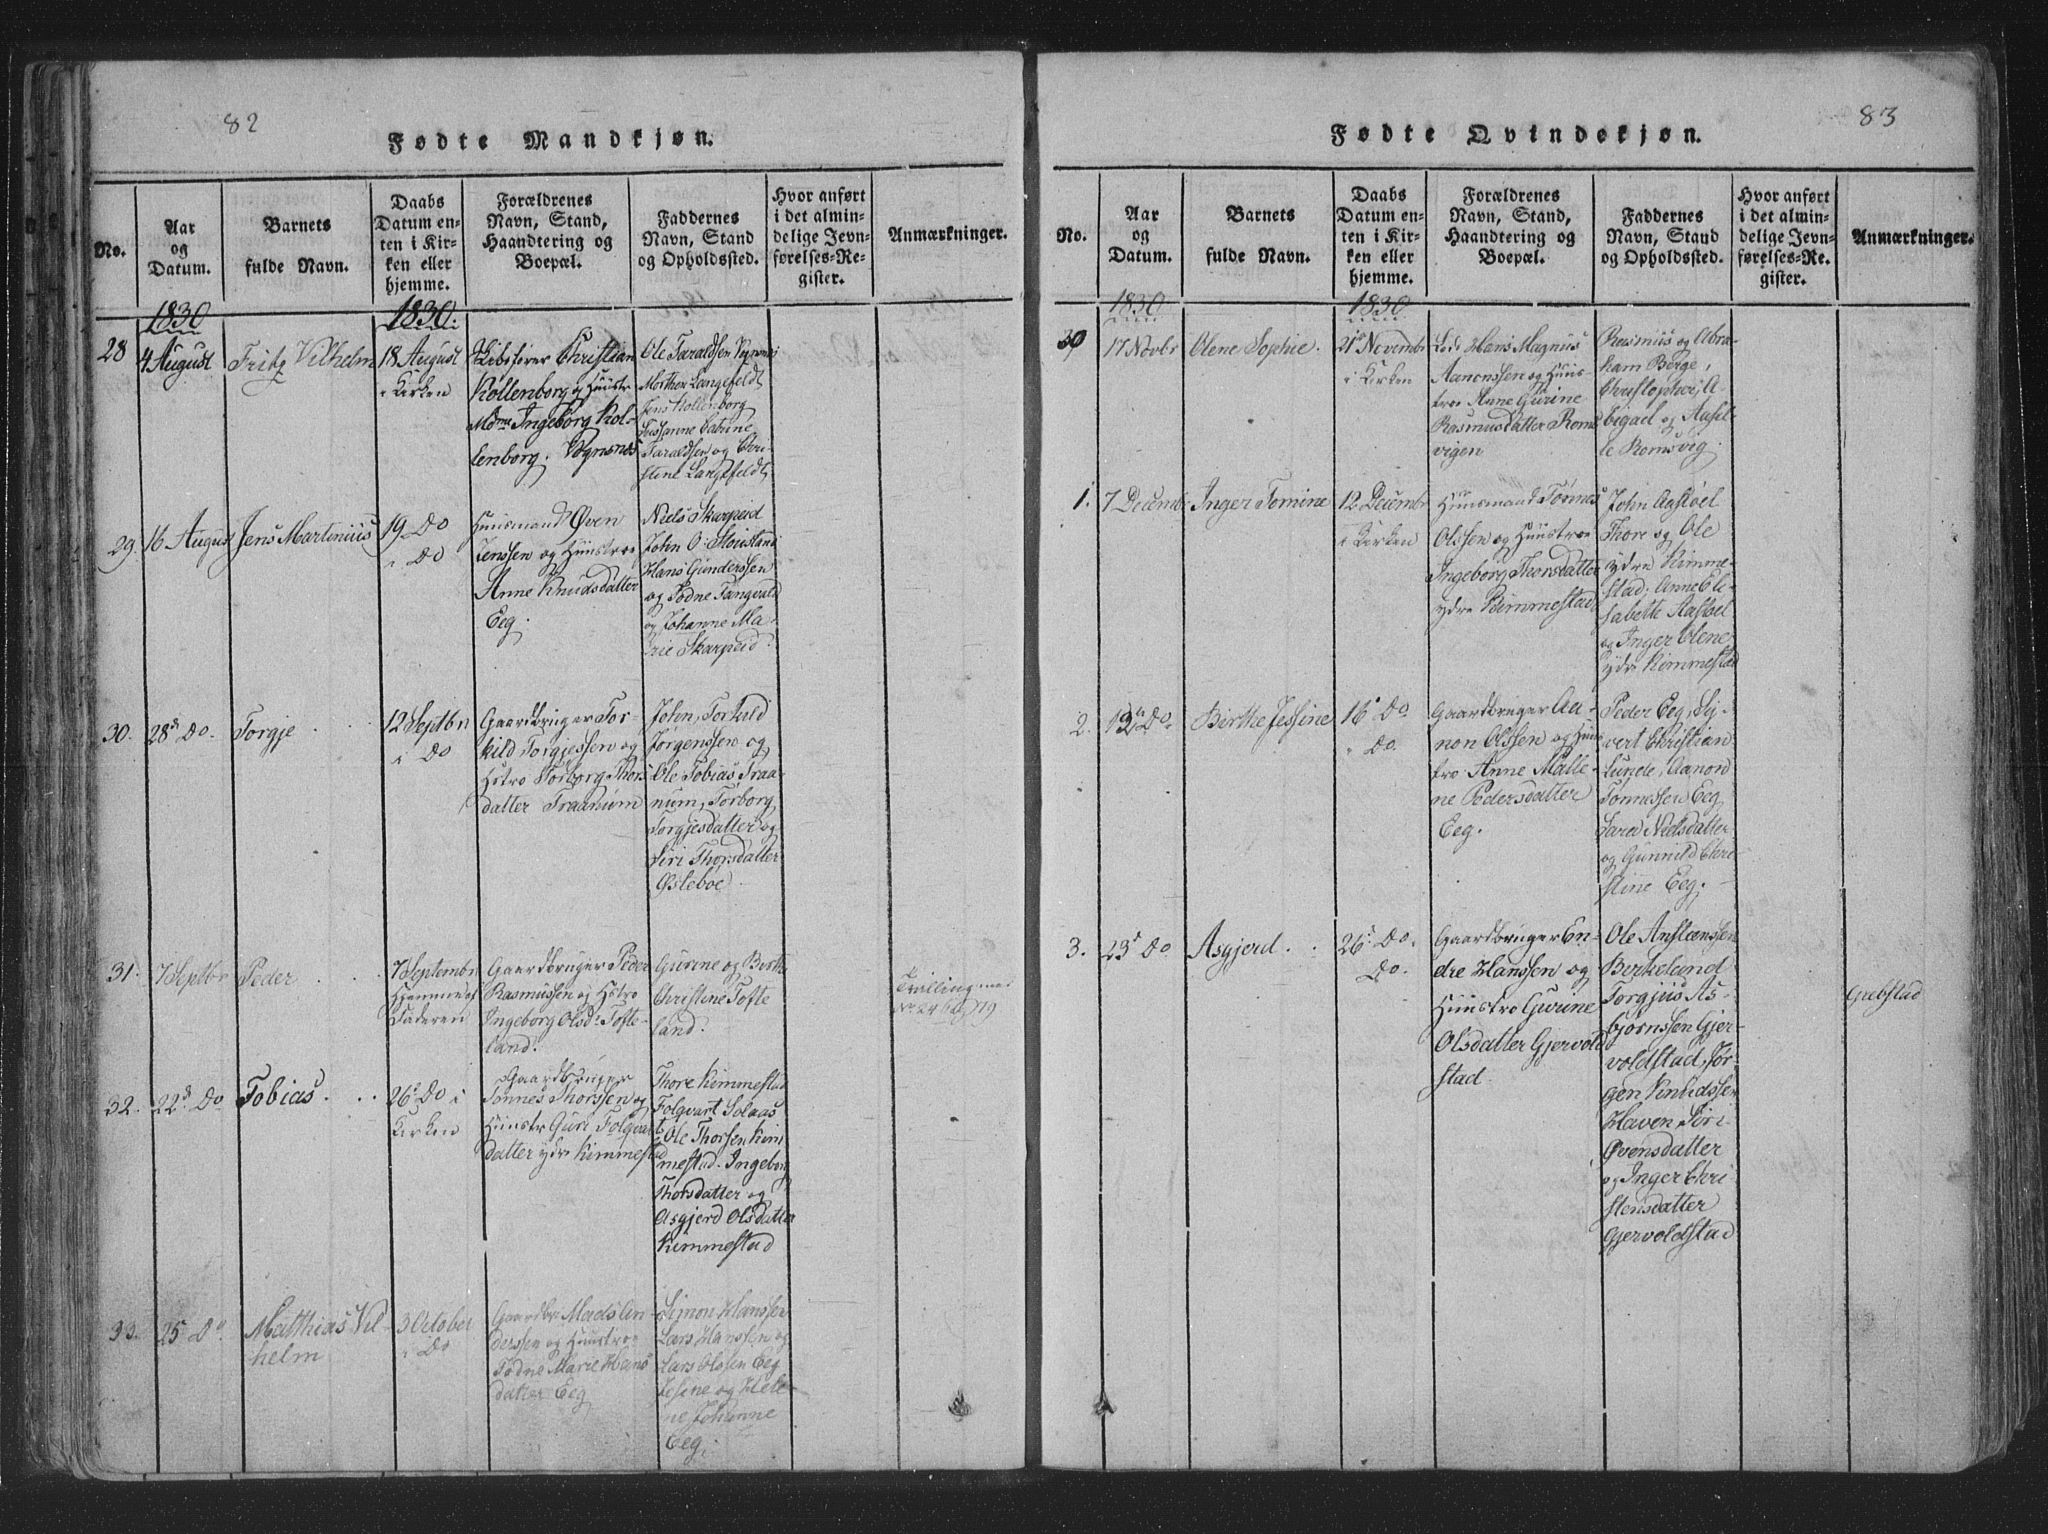 82
Fødte Mandkjøn.
No.
Aar
og
Datum.
Barnets
fulde Navn.
Daabs
Datum en-
ten i Kir-
ken eller
hjemme.
Forældrenes
Navn, Stand,
Haandtering og
Boepæl.
Faddernes
Navn, Stand
og Opholdssted.
Hvor anført
i det almin-
delige Jevn-
førelses-Re-
gister.
Anmærkninger.
1830
1830.
28
4 August
Fritz Vilhelm
18 August
i Kirken
Christian
Kollenborg og Huustr
Mdme Ingeborg Kol-
lenborg. Vognsnes
Ole Taraldsen Vognsnes
Morthen Langefeldt
Jens Kollenborg
Susanne Catrine
Taraldsen og Chri-
stene Langefeldt
29.
16 August
Jens Martinius
19 Do
i Do
Huusmand Øven
Jenssen og Huustroe
Anne Knudsdatter
Eeg.
Niels Skarpeid
John O:
Hans Gunderssen
og Todne Tangvald
og Johanne Ma-
rie Skarpeid.
30.
28de Do.
Torgje
12 Septbr
i Do
Gaardbruger Tor-
kild Torgjessen og
Hstro Torborg Thors
datter Traanum
John, Torkild
Jørgenssen og
Ole Tobias Traa-
num, Torborg
Torgjesdatter og
Siri Thorsdatter
Øsleboe.
31.
7 Septbr
Peder
7 Septembr
Hjemme af
Faderen
Gaardbruger Peder
Rasmussen og Hstro
Ingeborg Olsdr Tofte-
land.
Gurine og Birthe
Christine Tofte
land.
Tvilling med
No 24 Pag 79
32.
22de Do
Tobias.
26de Do i
Kirken
Gaardbruger
Tønnes Thorssen og
Huustr Guri Folqvart
datter ydre Kimmestad
Thore Kimmestad
Folqvart Solaas
Ole Thorsen Kim
mestad. Ingeborg
Thorsdatter og
Asgjerd Olsdatter
Kimmestad
33.
25 Do
Matthias Vil-
helm
3 October
i Do
Gaardbr Mads An-
derssen og Huustroe
Todne Marie Hans
datter Eeg
Simon Hanssen
Lars Hanssen og
Lars Olssen Eeg
Jesine og Hele-
ne Johanne
Eeg.
83
Fødte Qvindekjøn.
No.
Aar
og
Datum.
Barnets
fulde Navn.
Daabs
Datum en-
ten i Kir-
ken eller
hjemme.
Forældrenes
Navn, Stand,
Haandtering og
Boepæl.
Faddernes
Navn, Stand
og Opholdssted.
Hvor anført
i det almin-
delige Jevn-
førelses-Re-
gister.
Anmærkninger.
1830
1830
30
17 Novbr
Olene Sophie.
21 Novembr
i Kirken
Lods Hans Magnus
Aanonssen og Huus-
troe Anne Gurine
Rasmusdatter Roms
vigen
Rasmus og Abra-
ham Berge,
Christopher, A-
bigael og Axsel-
le Romsvig.
1.
7 Decembr
Inger Tomine
12 Decembr
i Kirken
Huusmand Tønnes
Olssen og Huustroe
Ingeborg Thorsdatter
ydre Kimmestad
John Aastøel
Thore og Ole
ydre Kimme-
stad, Anne Eli-
sabette Aastøel
og Inger Olene
ydr Kimmestad
2.
Do
Birthe Jessine
16 Do
" Do
Gaardbruger Aa-
non Olssen og Huus
tro Anne Malle-
ne Pedersdatter
Eeg.
Peder Eeg, Si-
vert Christian
Lunde, Aanon
Tønnessen Eeg
Sara Nielsdatter
og Gunnild Chri
stine Eeg.
3.
23de Do
Asgjerd.
26de Do.
Do.
Gaardbruger En-
dre Hanssen og
Huustro Gurine
Olsdatter Gjervold
stad.
Ole Anstenssen
Birkeland
Torgjus As-
bjørnssen Gjer-
voldstad, Jør-
gen
Haven Siri
Øvensdatter
og Inger Chri
stensdatter
Gjervoldstad
Grebstad